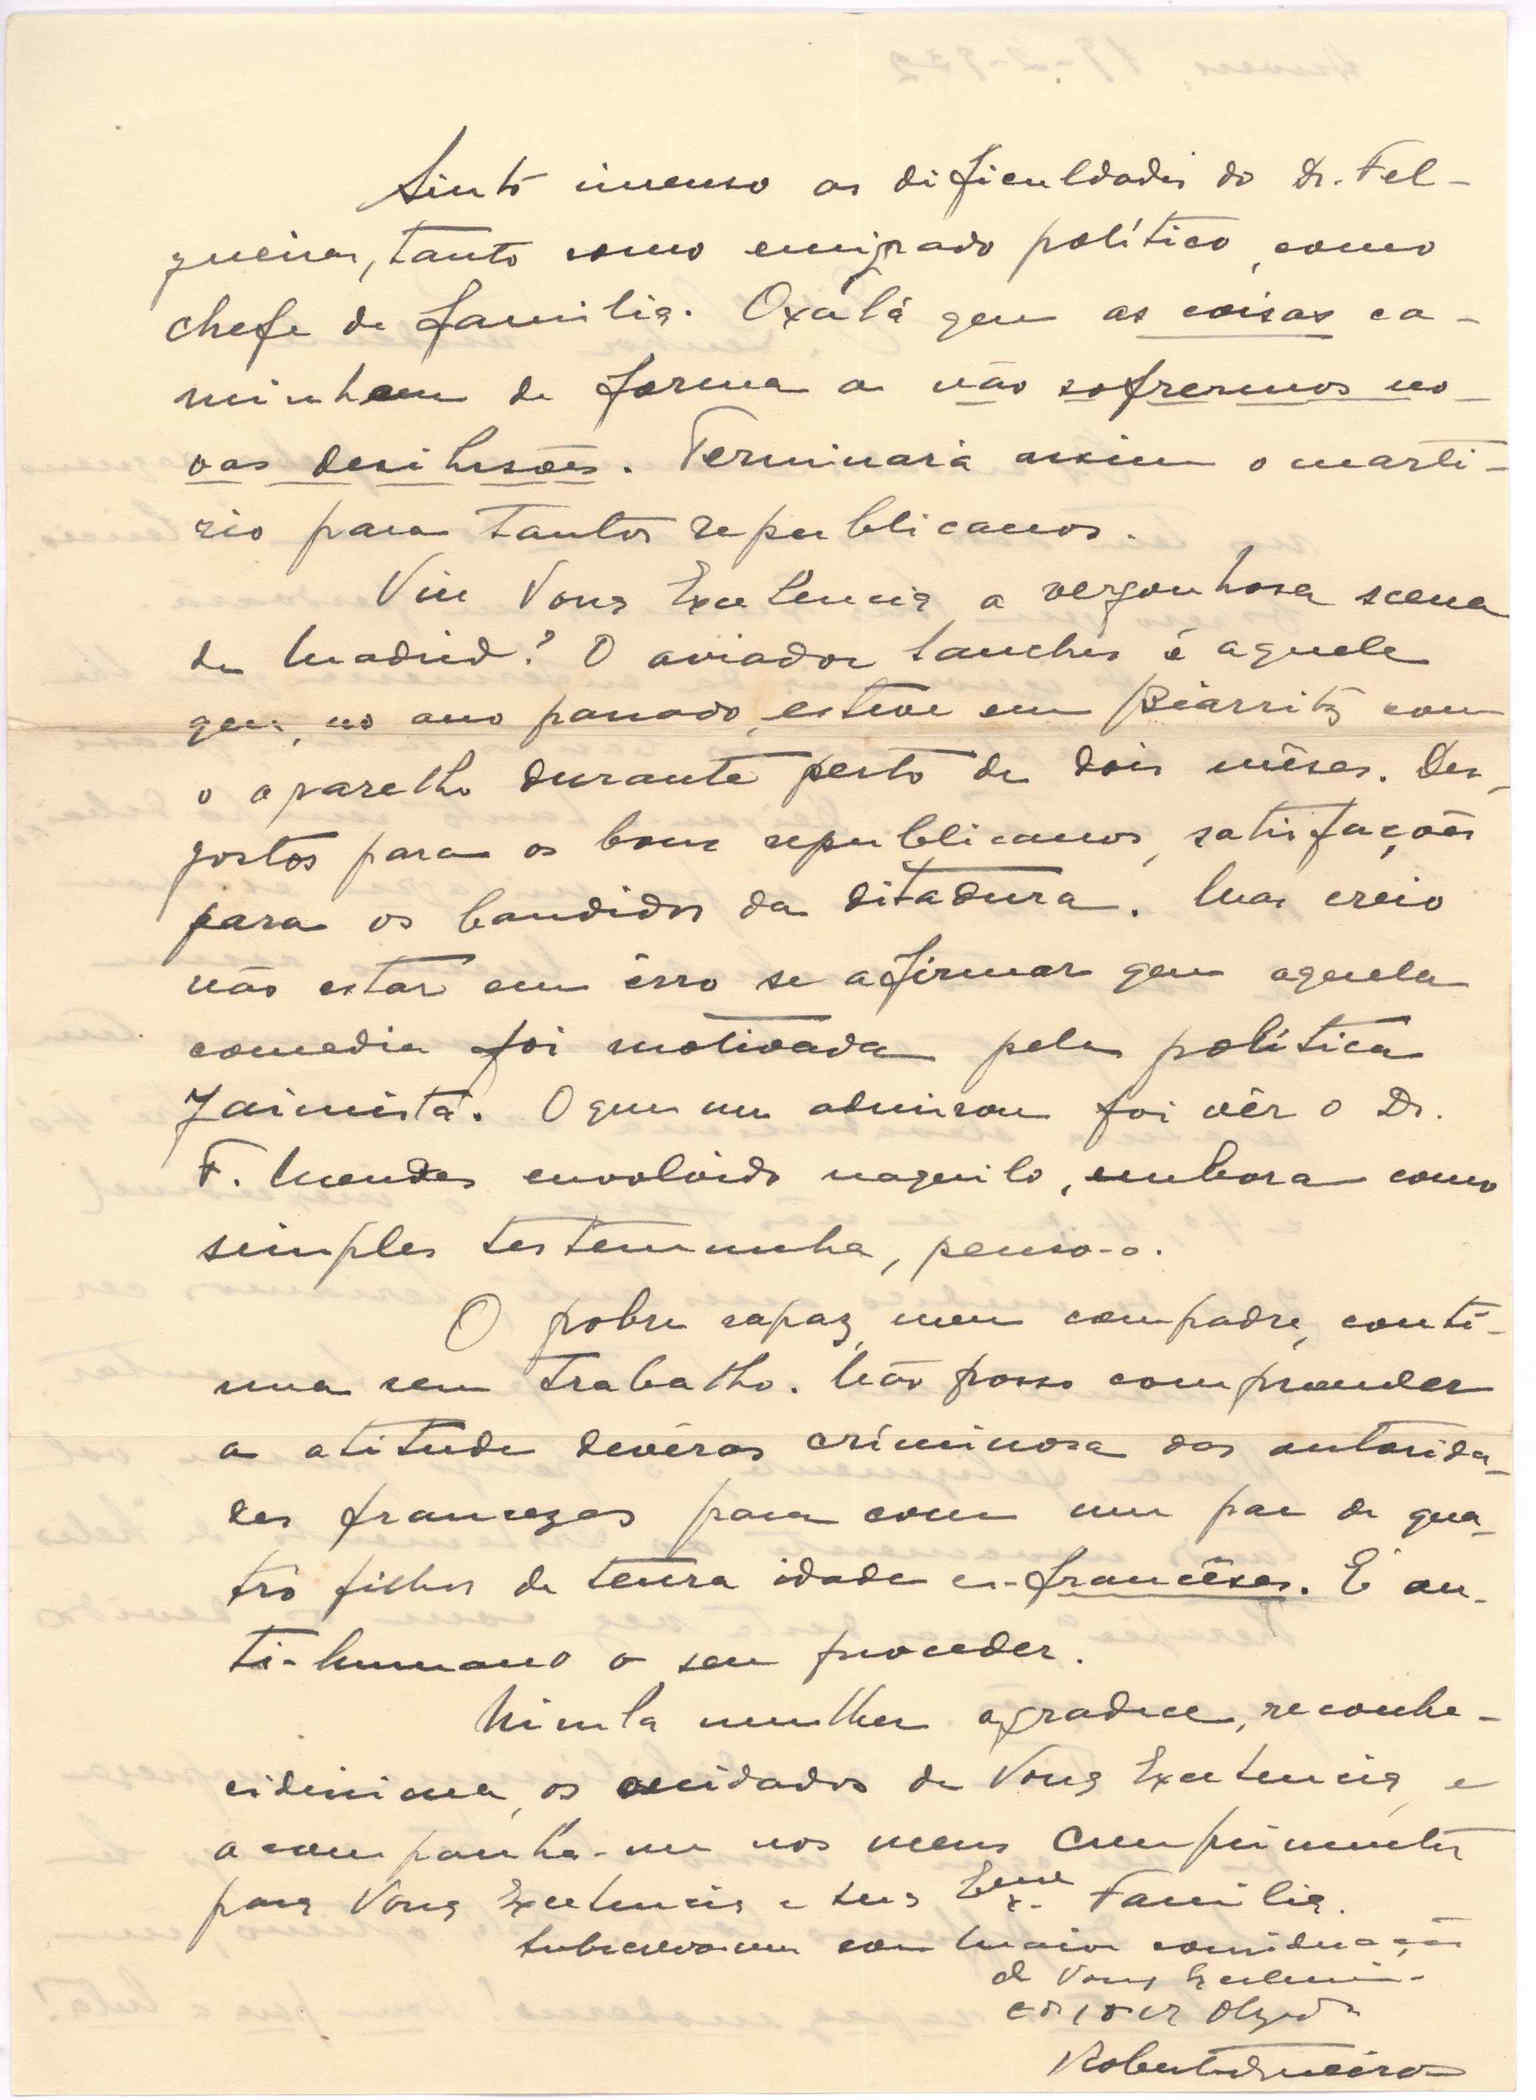 Sinto imenso as dificuldades do Dr. Fel-
gueiras, tanto como emigrado político, como
chefe de familia. Oxalá que as coisas ca-
minhem de forma a não sofrermos no-
vas desilusões. Terminará assim o martí-
rio para tantos republicanos.
Viu Vossa Excelencia a vergonhosa scena
de Madrid? O aviador Sanches é aquele
que, no ano passado, esteve em Biarritz com
o aparelho durante perto de dois mêses. Des-
gostos para os bons republicanos, satisfações
para os bandidos da ditadura. Mas creio
não estar em êrro se afirmar que aquela
comedia foi motivada pela política
Jaimista. O que me admirou foi vêr o Dr.
F. Mendes envolvido naquilo, embora como
simples testemunha, penso-o.
O pobre rapaz, meu compadre, conti-
nua sem trabalho. Não posso comprender
a atitude devéras criminosa das autorida-
des francezas para com um pae de qua-
tro filhos de tenra idade e-francêses. É an-
ti-humano o seu proceder.
Minha mulher agradece, reconhe-
cidissima, os cuidados de Vossa Excelencia, e
acompanha-me nos meus cumprimentos
para Vossa Excelencia e sua Exma. Familia.
Subscrevo-me com maior consideração
de Vossa Excelencia
Obgdo